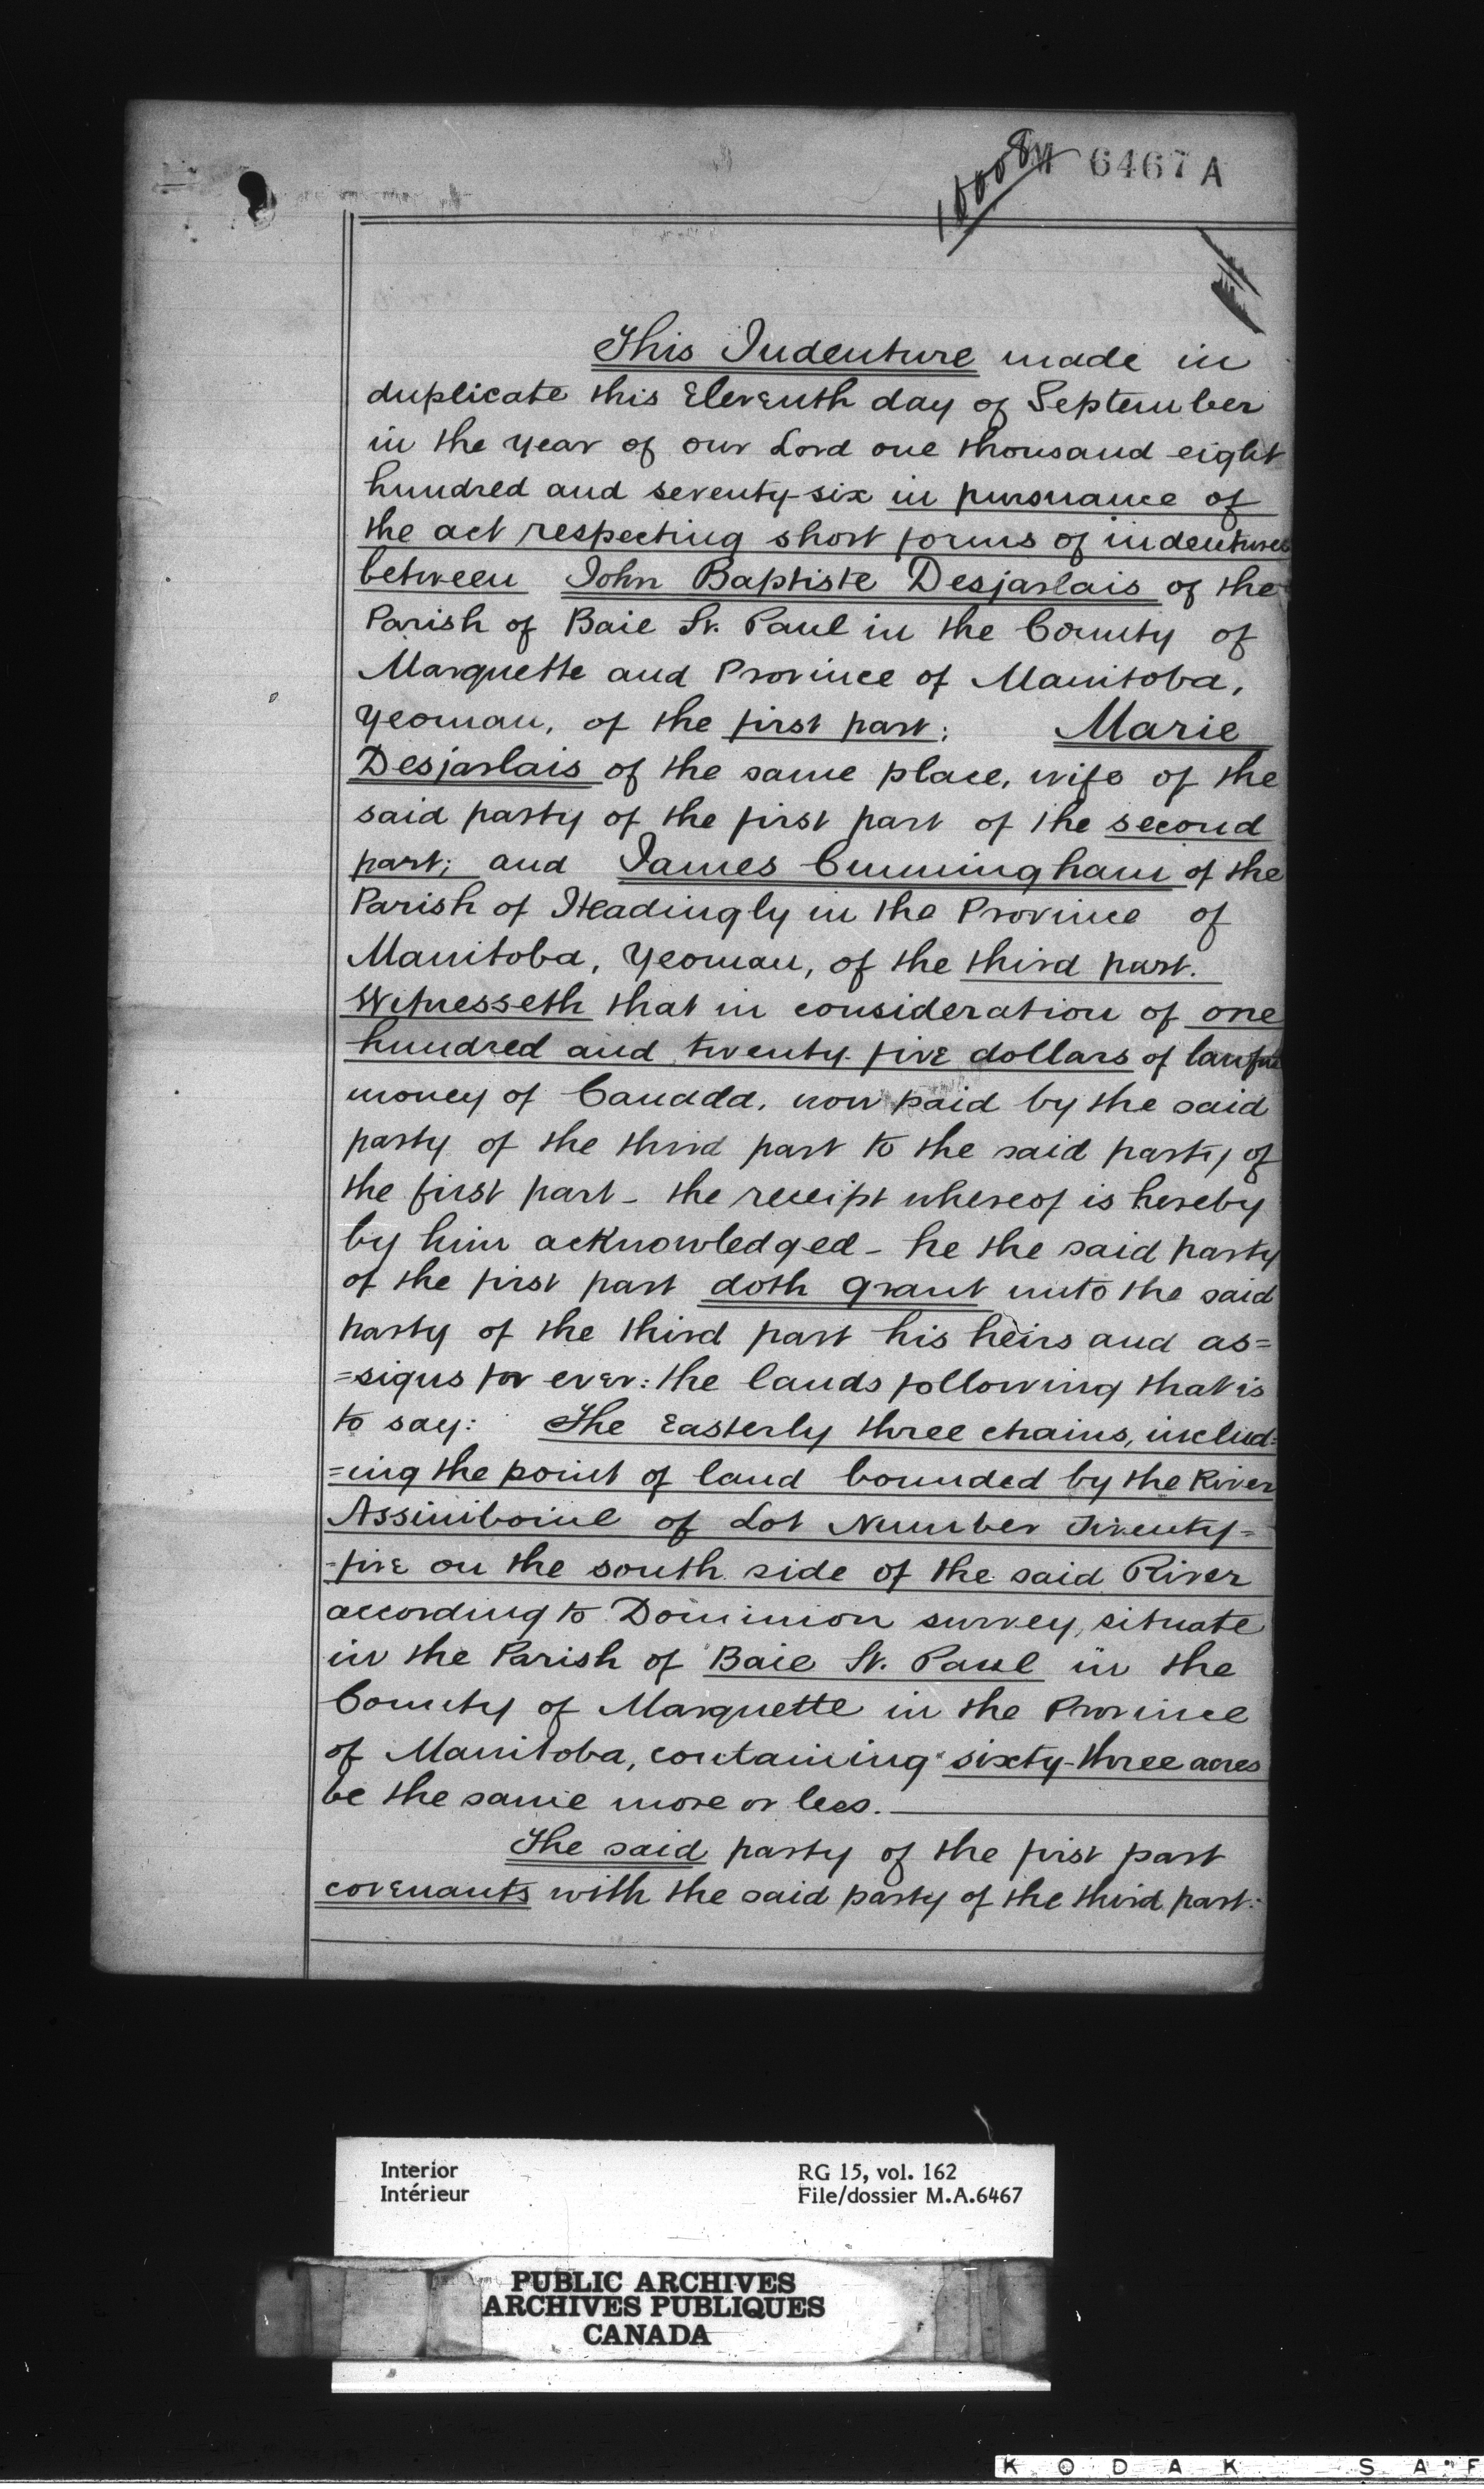 6467 A
This Indenture made in
duplicate this Eleventh day of September
in the year of our Lord one thousand eight
hundred and seventy-six in pursuance of
the act respecting short forms of indentures
between John Baptiste Desjarlais of the
Parish of Baie St. Paul in the County of
Marquette and Province of Manitoba,
Yeoman, of the first part; Marie
Desjarlais of the same place, wife of the
said party of the first part of the second
part; and James Cunningham of the
Parish of Headingly in the Province of
Manitoba, Yeoman, of the third part.
Witnesseth that in consideration of one
hundred and twenty-five dollars of lawful
money of Canada, now paid by the said
party of the third part to the said party of
the first part - the receipt whereof is hereby
by him acknowledged - he the said party
of the first part doth grant unto the said
party of the third part his heirs and as=
=signs for ever: the lands following that is
to say: The Easterly three chains, includ=
=ing the point of land bounded by the River
Assiniboine of Lot Number Twenty=
=five on the south side of the said River
according to Dominion survey, situate
in the Parish of Baie St. Paul in the
County of Marquette in the Province
of Manitoba, containing sixty-three acres
be the same more or less.
The said party of the first part
covenants with the said party of the third part:
Interior RG 15, vol. 162
Intérieur File/dossier M.A.6467
PUBLIC ARCHIVES
ARCHIVES PUBLIQUES
CANADA
KODAK SAF